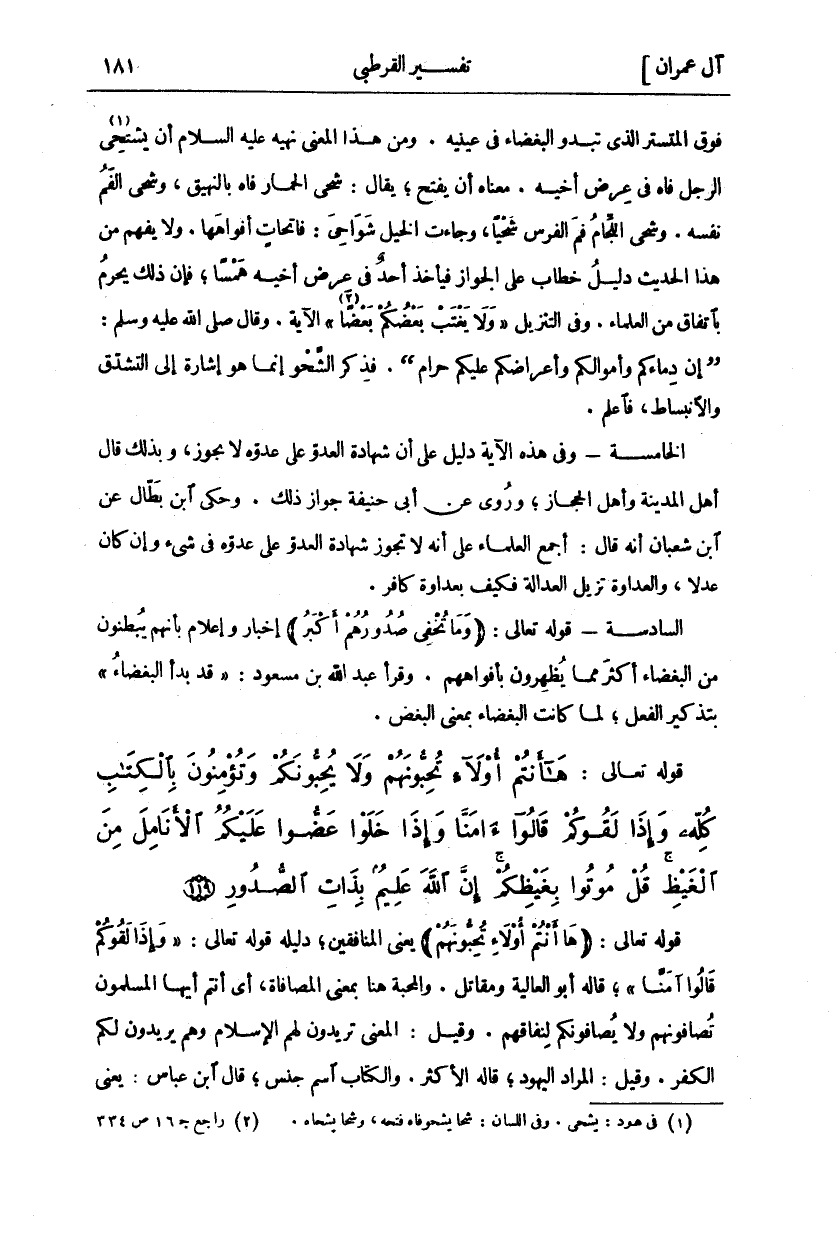 آل عمران ] تفسير القرطبي ١٨١
فوق المتستر الذى تبدو البغضاء فى عينيه . ومن هذا المعنى نهيه عليه السلام أن يشتحِى (١)
الرجل فاه فى عِرض أخيه . معناه أن يفتح ؛ يقال : شحى الحمار فاه بالنهيق ، وشحى الفَمُ
نفسه . وشحى اللِّجَامُ فمَ الفرس شَحْيًا ، وجاءت الخيل شَوَاحِىَ : فاتحاتٍ أفواهَها . ولا يفهم من
هذا الحديث دليلُ خطاب على الجواز فيأخذ أحدٌ فى عرض أخيه هَمْسًا ؛ فإن ذلك يحرمُ
بآتفاق من العلماء . وفى التنزيل « وَلَا يَغْتَبْ بَعْضُكُمْ بَعْضًا (٢) » الآية . وقال صلى الله عليه وسلم :
” إن دِماءكم وأموالكم وأعراضكم عليكم حرام “ . فذِكر الشَّحْو إنما هو إشارة إلى التشدّق
والآنبساط ، فآعلم .
الخامسة – وفى هذه الآية دليل على أن شهادة العدوّ على عدوّه لا يجوز ، وبذلك قال
أهل المدينة وأهل الحجاز ؛ ورُوى عن أبى حنيفة جواز ذلك . وحكى آبن بَطّال عن
آبن شعبان أنه قال : أجمع العلماء على أنه لا تجوز شهادة العدوّ على عدوّه فى شىء وإن كان
عدلا ، والعداوة تزيل العدالة فكيف بعداوة كافر .
السادسة – قوله تعالى : ﴿وَمَا تُخْفِى صُدُورُهُمْ أَكْبَرُ﴾ إخبار وإعلام بأنهم يُبطنون
من البغضاء أكثرَ مما يُظهِرون بأفواههم . وقرأ عبد الله بن مسعود : « قد بدأ البغضاءُ »
بتذكير الفعل ؛ لما كانت البغضاء بمعنى البغض .
قوله تعالى : هَٰٓأَنتُمْ أُوْلَآءِ تُحِبُّونَهُمْ وَلَا يُحِبُّونَكُمْ وَتُؤْمِنُونَ بِٱلْكِتَٰبِ
كُلِّهِۦ وَإِذَا لَقُوكُمْ قَالُوٓا ءَامَنَّا وَإِذَا خَلَوْا عَضُّوا عَلَيْكُمُ ٱلْأَنَامِلَ مِنَ
ٱلْغَيْظِۚ قُلْ مُوتُوا بِغَيْظِكُمْۚ إِنَّ ٱللَّهَ عَلِيمُۢ بِذَاتِ ٱلصُّدُورِ ﴿١١٩﴾
قوله تعالى : ﴿هَا أَنْتُمْ أُولَاءِ تُحِبُّونَهُمْ﴾ يعنى المنافقين ؛ دليله قوله تعالى : « وَإِذَا لَقُوكُمْ
قَالُوا آمَنَّا » ؛ قاله أبو العالية ومقاتل . والمحبة هنا بمعنى المصافاة ، أى أنتم أيها المسلمون
تُصافونهم ولا يُصافونكم لِنفاقهم . وقيل : المعنى تريدون لهم الإسلام وهم يريدون لكم
الكفر . وقيل : المراد اليهود ؛ قاله الأكثر . والكتاب آسم جنس ؛ قال آبن عباس : يعنى
(١) فى هود : يشحى . وفى اللسان : شحا يشحو فاه فتحه ، وشحا يشحاه . (٢) راجع جـ ١٦ ص ٣٣٤